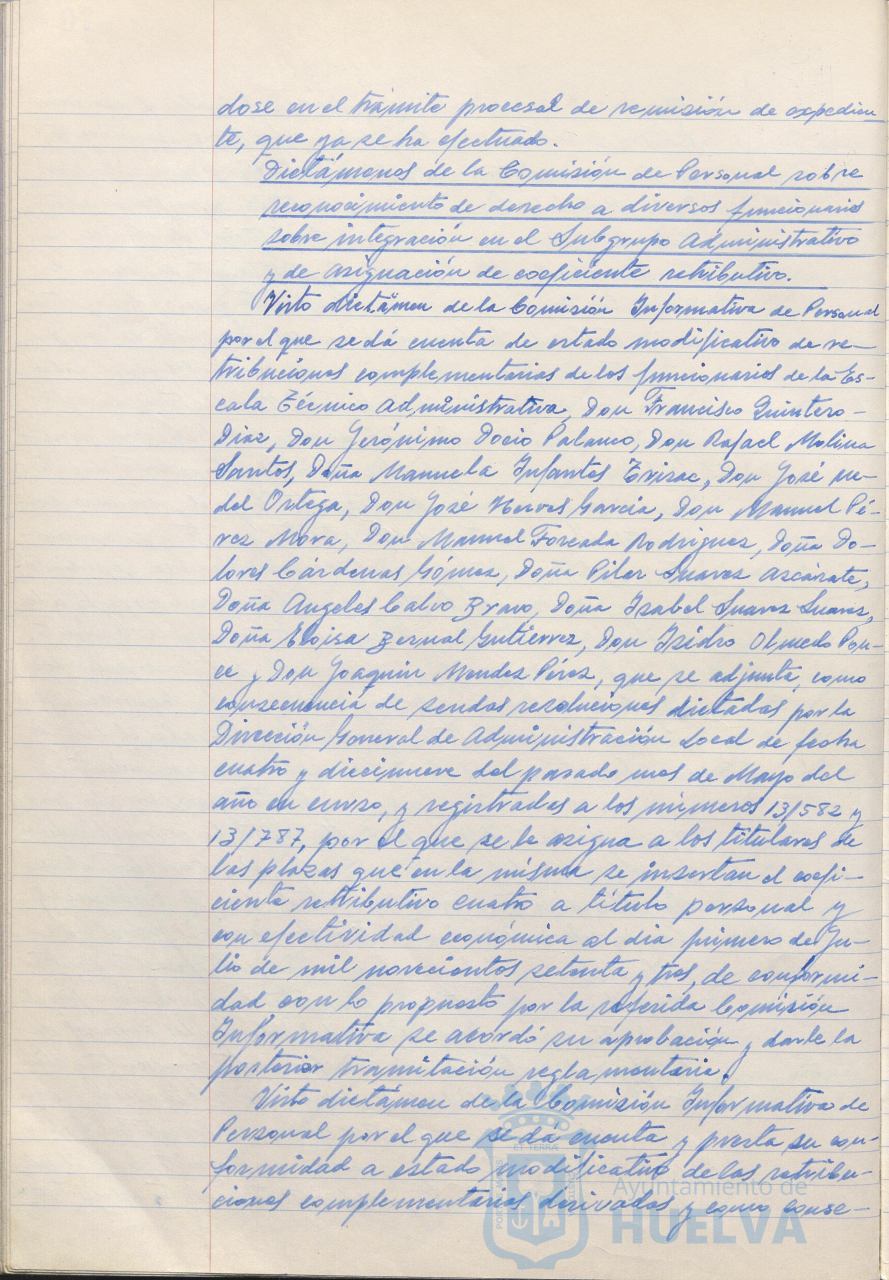 dose en el trámite procesal de remisión de expedien-
te, que ya se ha efectuado.
Dictámenes de la Comisión de Personal sobre
reconocimiento de derecho a diversos funcionarios
sobre integración en el Subgrupo Administrativo
y de asignación de coeficiente retributivo.
Visto dictámen de la Comisión Informativa de Personal
por el que se dá cuenta de estado modificativo de re-
tribuciones complementarias de los funcionarios de la Es-
cala Técnico Administrativa, Don Francisco Quintero
Diaz, Don Jerónimo Docio Palanco, Don Rafael Molina
Santos, Doña Manuela Infantes, Don José
del Ortega, Don José Hervas García, Don Manuel Pé-
rez Mora, Don Manuel Forcada Rodriguez, Doña Do-
lores Cárdenas Gómez, Doña Pilar Suarez Azcárate,
Doña Angeles Calvo Bravo, Doña Isabel Suarez Suarez,
Doña Eloisa Bernal Gutierrez, Don Isidro Olmedo Pon-
ce y Don Joaquin Mendez Pérez, que se adjunta, como
consecuencia de sendas resoluciones dictadas por la
Dirección General de Administración Local de fecha
cuatro y diecinueve del pasado mes de Mayo del
año en curso, y registradas a los números 13/582 y
13/787, por el que se le asigna a los titulares de
las plazas que en la misma se insertan el coefi-
ciente retributivo cuatro a título personal y
con efectividad económica al dia primero de Ju-
lio de mil novecientos setenta y tres, de conformi-
dad con lo propuesto por la referida Comisión
Informativa se acordó su aprobación y darle la
posterior tramitación reglamentaria.
Visto dictámen de la Comisión Informativa de
Personal por el que se da cuenta y presta su con-
formidad a estado modificativo de las retribu-
ciones complementarias derivadas y como conse-
Ayuntamiento de
HUELVA